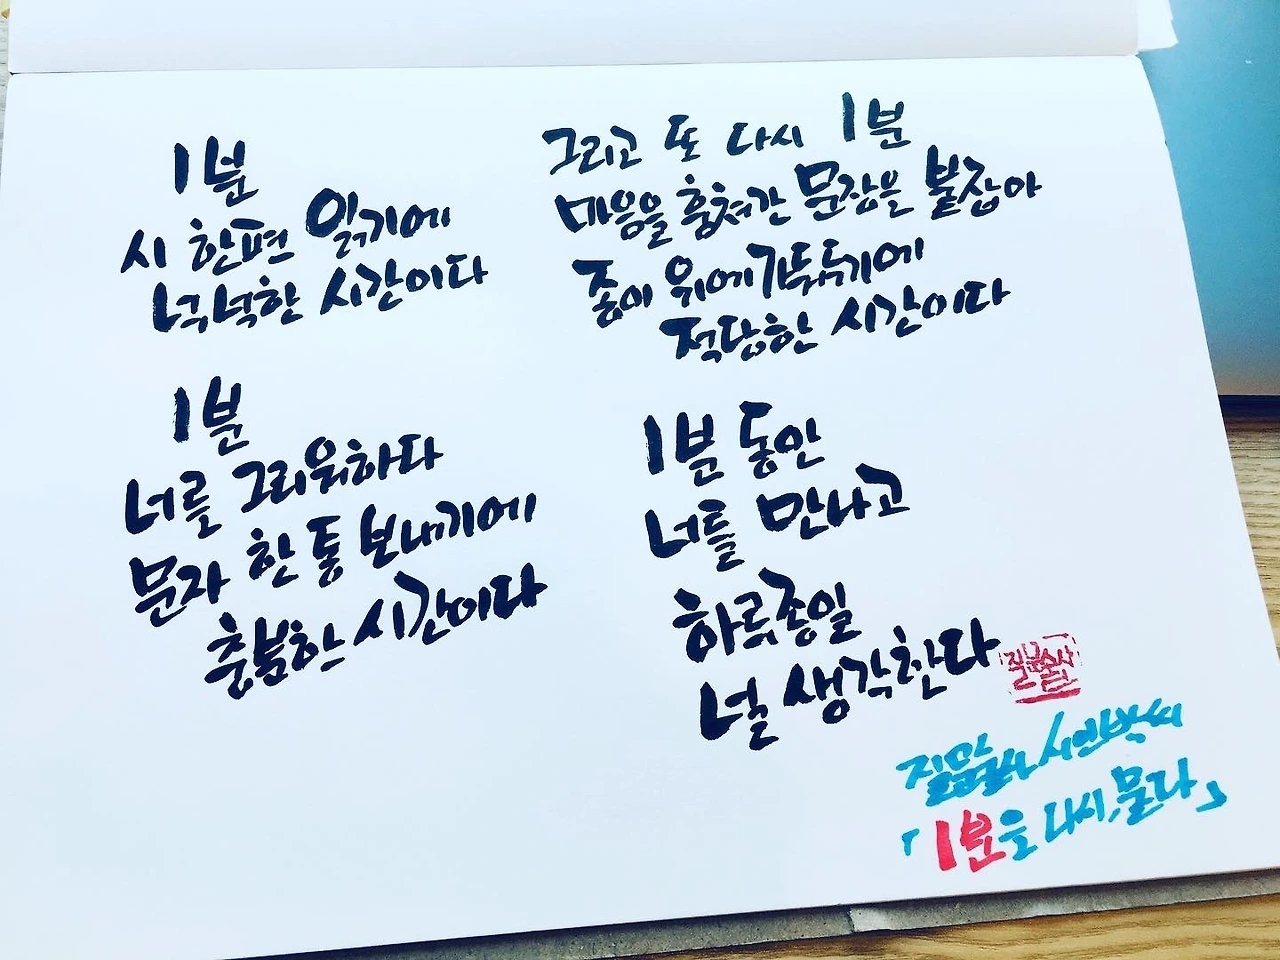 1분
시 한편 읽기에
넉넉한 시간이다
1분
너를 그리워하다
문자 한 통 보내기에
충분한 시간이다
그리고 또 다시 1분
마음을 훔쳐간 문장을 붙잡아
종이 위에 가둬두기에
적당한 시간이다
1분 동안
너를 만나고
하루종일
널 생각한다
질문술사
질문술사 시인박씨
「1분을 다시, 묻다」